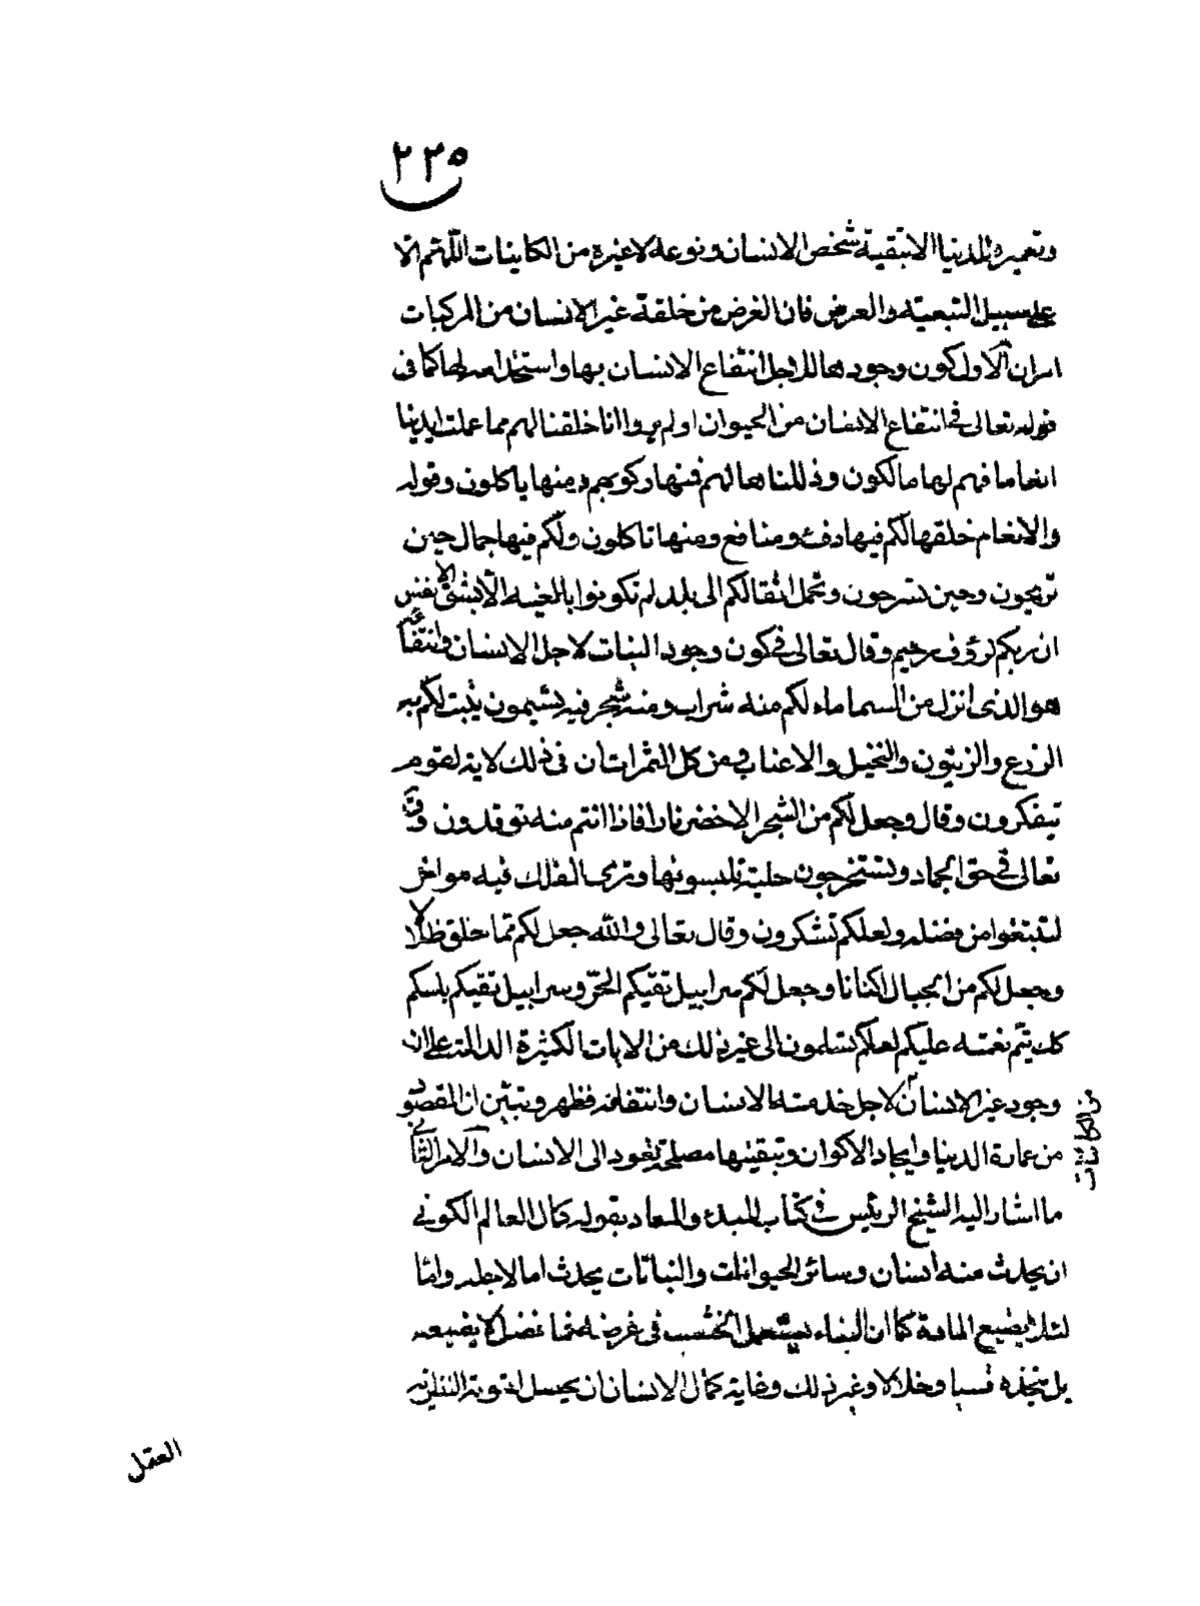 ٢٢٥
وتعميره للدنيا الا تبقية شخص الانسان ونوعه لا غيره من الكاينات اللهم الا
على سبيل التبعية والعرض فان الغرض من خلقة غير الانسان من المركبات
امران الاول كون وجودها لاجل انتفاع الانسان بها واستخدامه لها كما فى
قوله تعالى فى انتفاع الانسان من الحيوان اولم يروا انا خلقنا لهم مما عملت ايدينا
انعاما فهم لها مالكون وذللناها لهم فمنها ركوبهم ومنها ياكلون وقوله
والانعام خلقها لكم فيها دفء ومنافع ومنها تاكلون ولكم فيها جمال حين
تريحون وحين تسرحون وتحمل اثقالكم الى بلد لم تكونوا بالغيه الا بشق الانفس
ان ربكم لرؤف رحيم وقال تعالى فى كون وجود النبات لاجل الانسان وانتفاعه
هو الذى انزل من السماء ماء لكم منه شراب ومنه شجر فيه تسيمون ينبت لكم به
الزرع والزيتون والنخيل والاعناب ومن كل الثمرات ان فى ذلك لاية لقوم
يتفكرون وقال وجعل لكم من الشجر الاخضر نارا فاذا انتم منه توقدون وقال
تعالى فى حق الجماد وتستخرجون حلية تلبسونها وترى الفلك فيه مواخر
لتبتغوا من فضله ولعلكم تشكرون وقال تعالى والله جعل لكم مما خلق ظلالا
وجعل لكم من الجبال اكنانا وجعل لكم سرابيل تقيكم الحرّ وسرابيل تقيكم باسكم
كذلك يتم نعمته عليكم لعلكم تسلمون الى غير ذلك من الايات الكثيرة الدالة على ان
وجود غير الانسان لاجل خدمته الانسان وانتفاعه فظهر وتبين ان المقصود
من الكاينات
من عمارة الدنيا وايجاد الاكوان وتبقيتها مصلحة تعود الى الانسان والامر الثانى
ما اشار اليه الشيخ الرئيس فى كتاب المبدء والمعاد بقوله كمال العالم الكونى
ان يحدث منه انسان وسائر الحيوانات والنباتات يحدث اما لاجله واما
لئلا يضيع المادة كما ان البناء يستعمل الخشب فى غرضه فما فضل لا يضيعه
بل يتخذه قسيا وخلالا وغير ذلك وغاية كمال الانسان ان يحصل لقوته النظرية
العقل